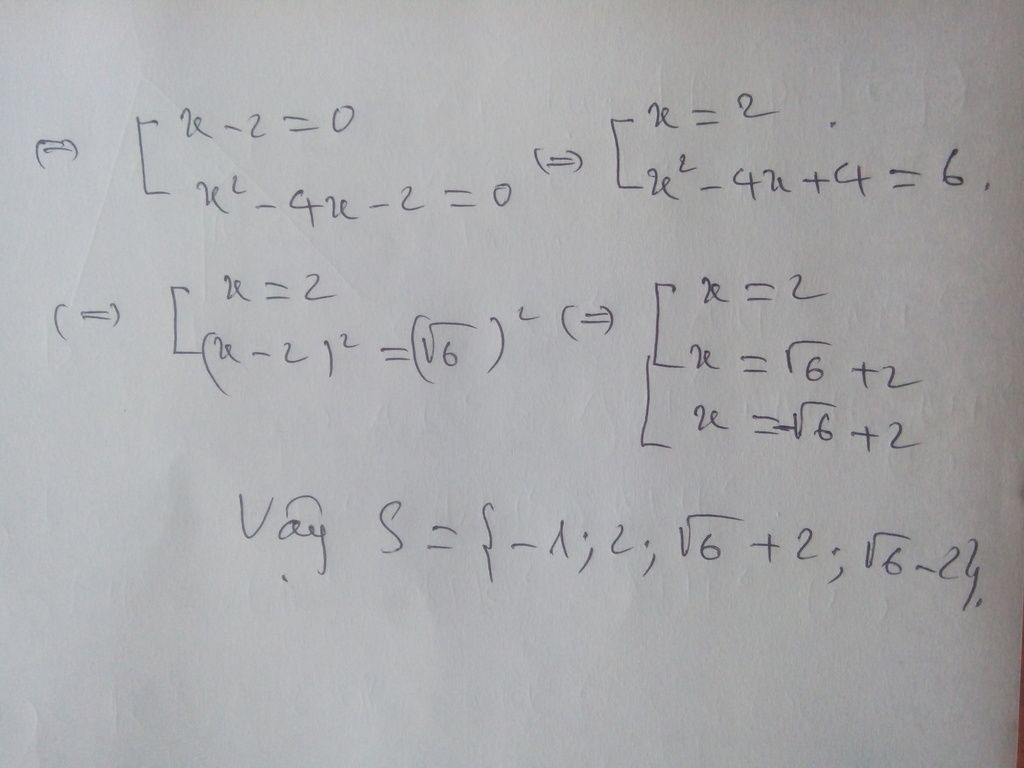 ⇔ [ x - 2 = 0 (⇒) [ x = 2 .
x² - 4x - 2 = 0 x² - 4x + 4 = 6.
(⇒) [ x = 2 (⇒) [ x = 2
(x - 2)² = (√6)² x = √6 + 2
x = -√6 + 2
Vậy S = {-1; 2; √6 + 2; √6 - 2}.